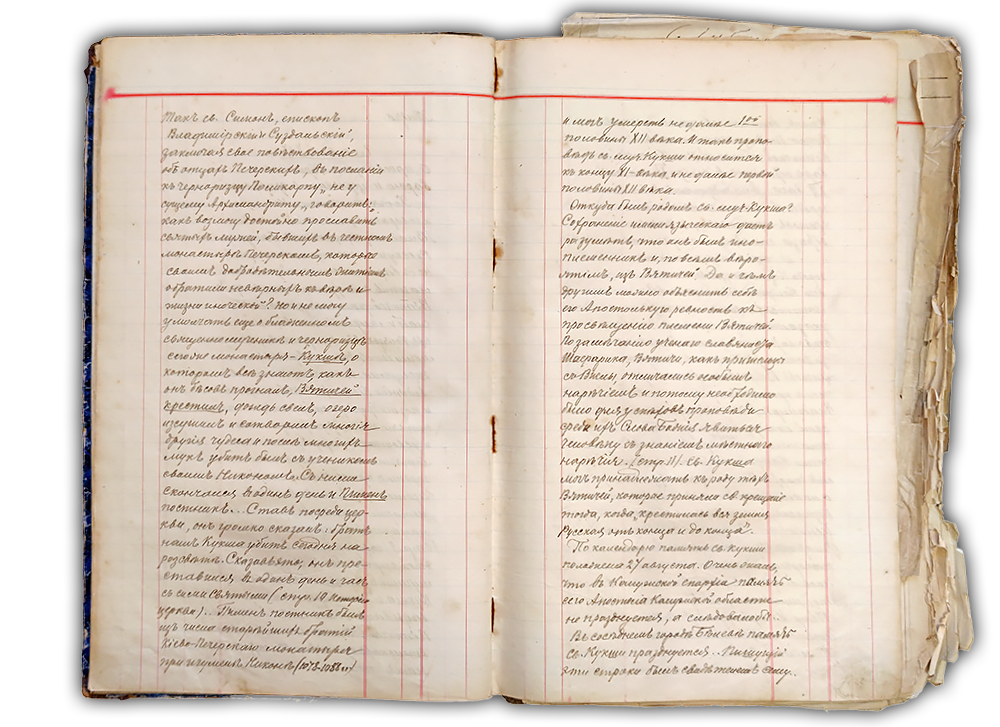 Такъ св. Симонъ, епископъ
Владимірскій и Суздальскій,
заключая свое повѣствованіе
объ отцахъ Печерскихъ, въ посланіи
къ черноризцу Поликарпу, „не у
сущему Архимандриту“, говоритъ:
какъ возмогу достойно прославить
святыхъ мужей, бывшихъ въ честномъ
монастырѣ Печерскомъ, которые
своимъ добродѣтельнымъ житіемъ
обратили невѣрныхъ къ вѣрѣ и
жизни иноческой? Но и не могу
умолчать еще о блаженномъ
священномученикѣ и черноризцѣ
сего же монастыря – Кукшѣ, о
которомъ всѣ знаютъ, какъ
онъ бѣсовъ прогналъ, Вятичей
крестилъ, дождь свелъ, озеро
изсушилъ и сотворилъ многія
другія чудеса и послѣ многихъ
мукъ убитъ былъ съ ученикомъ
своимъ Никономъ. Съ ними
скончался въ одинъ день и Пименъ
постникъ... Ставъ посреди цер-
кви, онъ громко сказалъ: братъ
нашъ Кукша убитъ сегодня на
разсвѣтѣ. Сказавъ это, онъ пре-
ставился въ одинъ день и часъ
съ сими святыми (стр. 10 Исторія
церкви). Пименъ постникъ былъ
изъ числа старѣйшихъ братій
Кіево-Печерскаго монастыря
при игуменѣ Никонѣ (1078-1088 гг)
и могъ умереть не далѣе 1ой
половины XII вѣка. И такъ пропо-
вѣдь св. муч. Кукши относится
къ концу XI-вѣка, и не далѣе первой
половины XII вѣка.
Откуда былъ родомъ св. муч. Кукша?
Сохраненіе имени языческаго даетъ
разумѣть, что онъ былъ ино-
племенникъ и, по всѣмъ вѣро-
ятіямъ, изъ Вятичей. Да и чѣмъ
другимъ можно объяснить себѣ
его Апостольскую ревность къ
просвѣщенію племени Вятичей.
По замѣчанію ученаго славянофа
Шафарика, Вятичи, какъ пришельцы
съ Вислы, отличались особымъ
нарѣчіемъ и потому необходимо
было для успѣховъ проповѣди
среди ихъ Слова Божія явиться
человѣку съ знаніемъ мѣстнаго
нарѣчія. (стр. 11). Св. Кукша
могъ принадлежать къ роду тѣхъ
Вятичей, которое приняло св. крещеніе
тогда, когда „крестилась вся земля
Русская отъ конца и до конца“.
По календарю память св. Кукши
положена 27 августа. Очень жаль,
что въ Калужской епархіи память
сего Апостола Калужской области
не празднуется, а слѣдовало бы.
Въ сосѣднемъ городѣ Бѣлевѣ память
св. Кукши празднуется. Пишущій
эти строки былъ свидѣтелемъ сему.